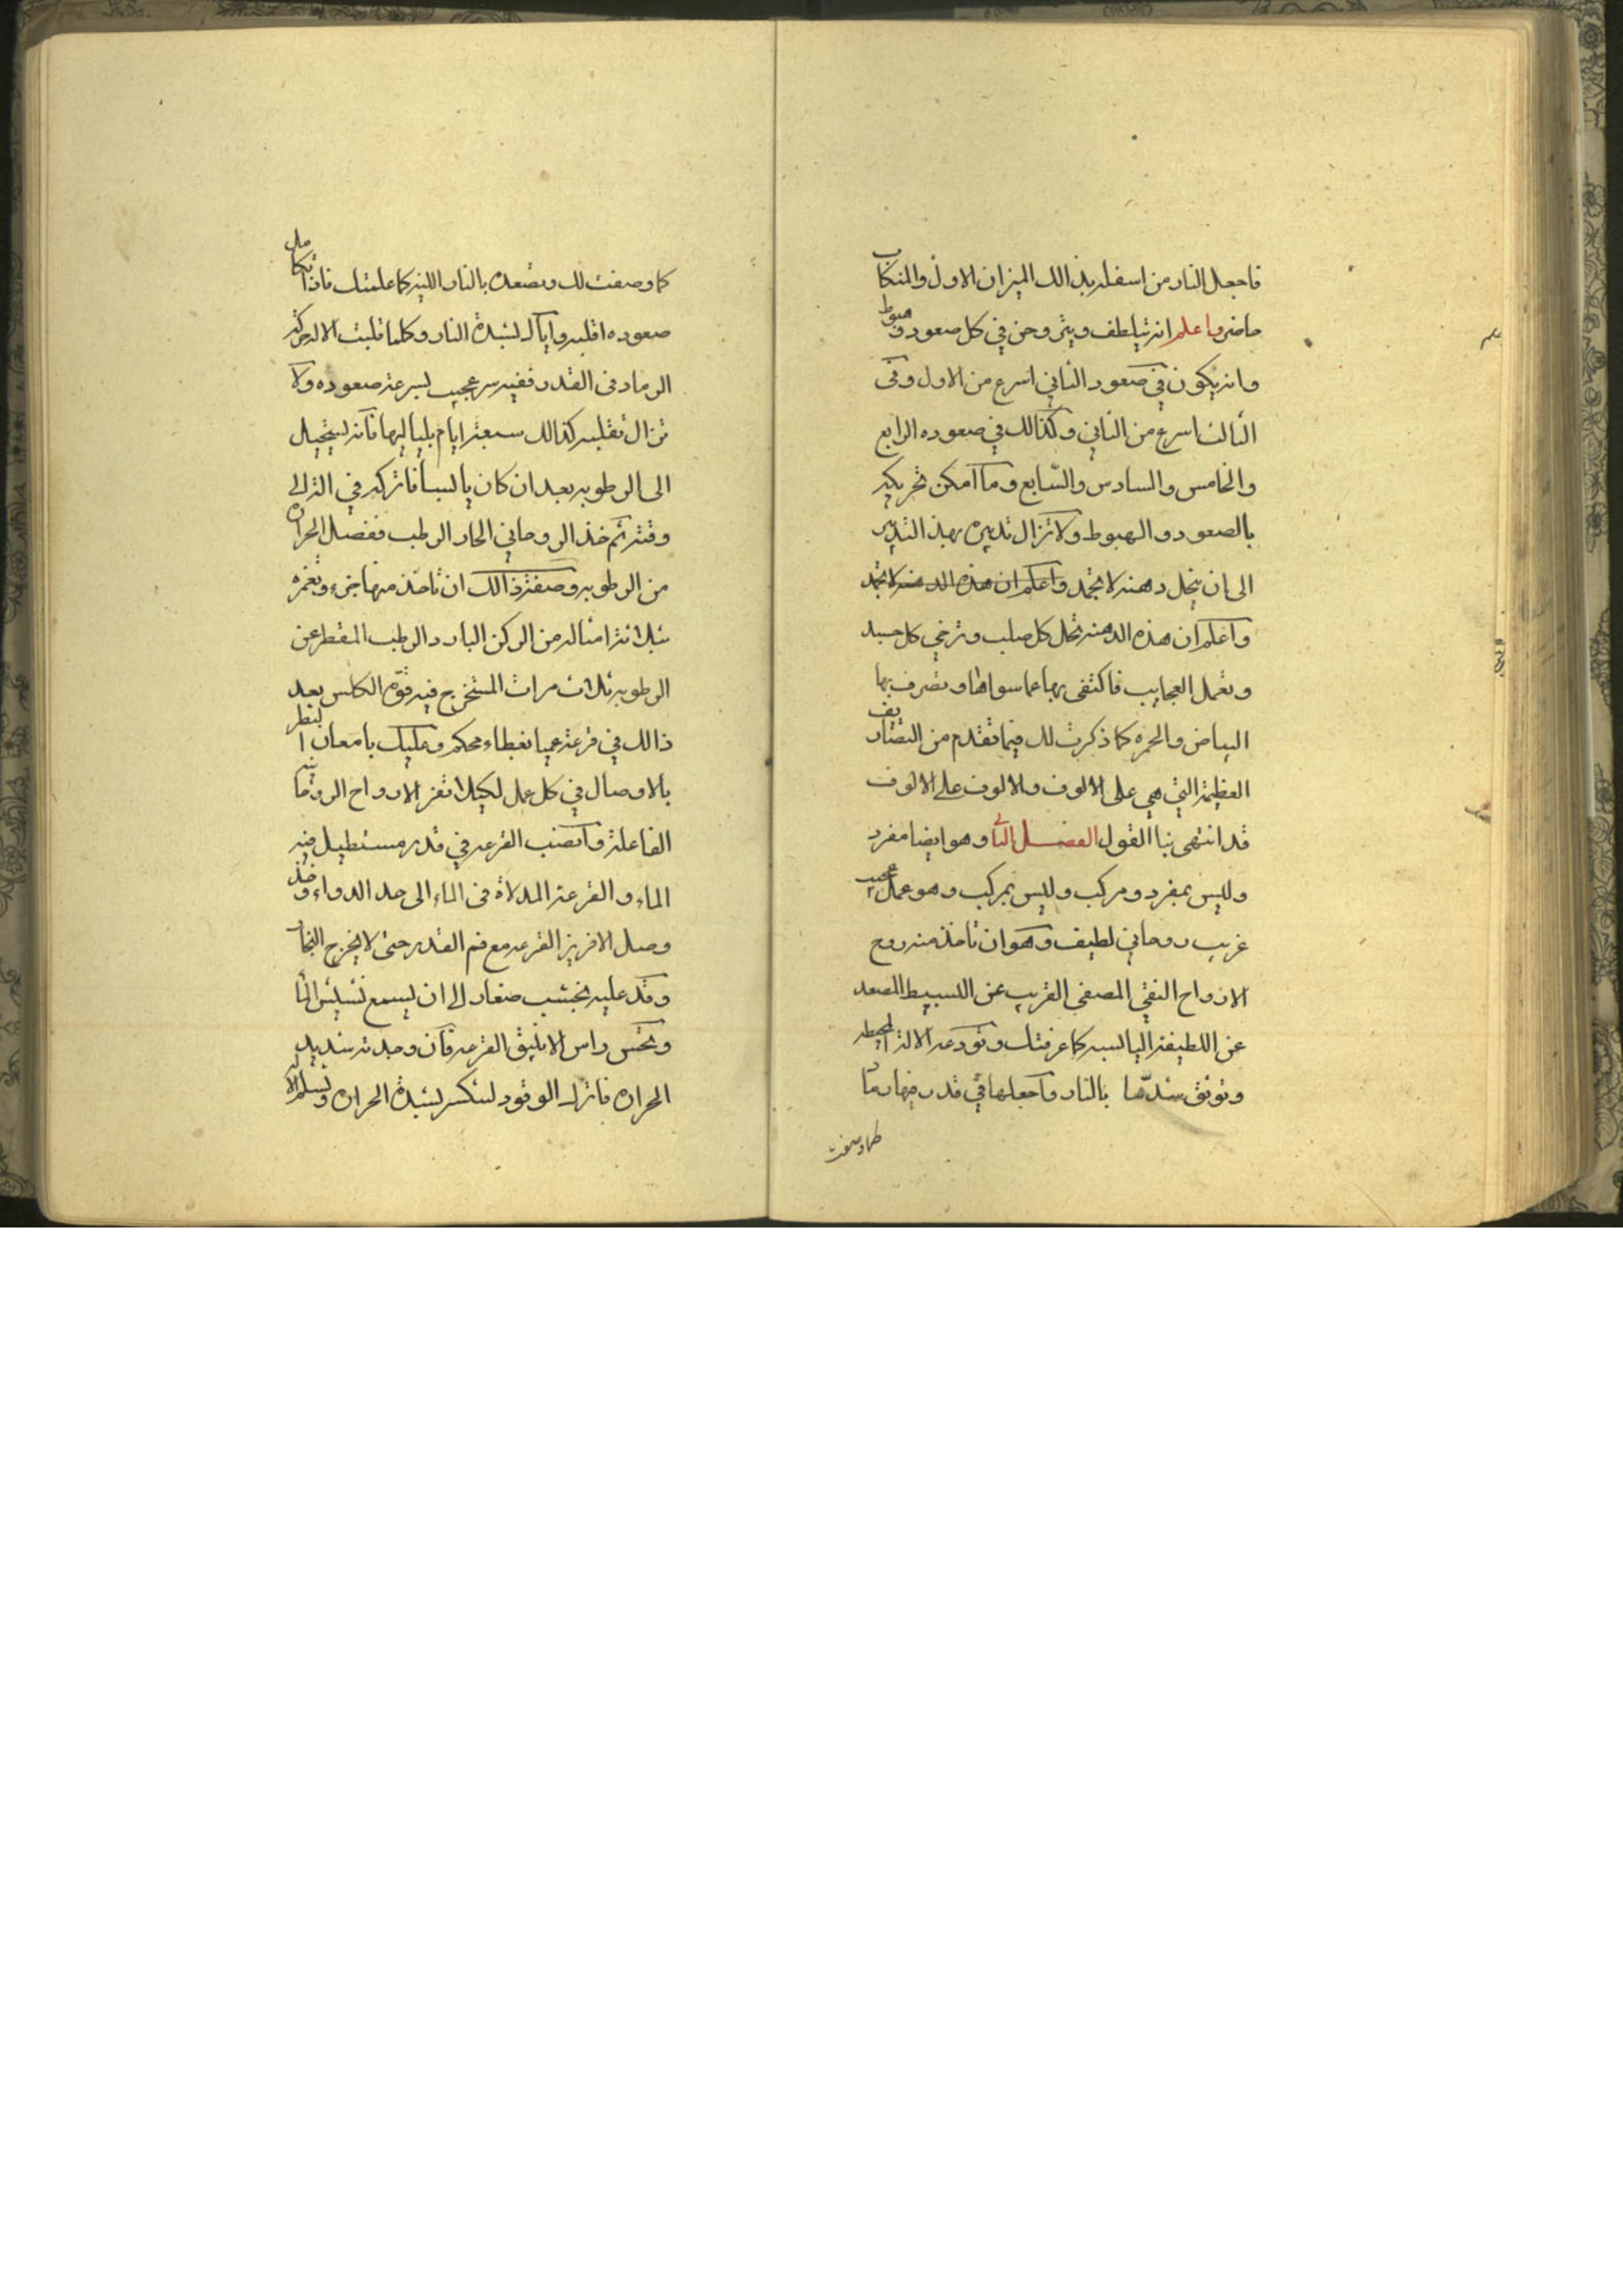 فاجعل النار من اسفله بذالك الميزان الاول والمنكاب
حاضر واعلم انه يتلطف ويتروحن في كل صعود وهبوط
وانه يكون في صعود الثاني اسرع من الاول وفي
الثالث اسرع من الثاني وكذالك في صعوده الرابع
والخامس والسادس والسابع وما امكن تحريكه
بالصعود والهبوط ولا تزال تدبيره بهذ التدبير
الى ان ينحل دهنه لا تجمد واعلم ان هذه الدهنه لا تجمد
واعلم ان هذه الدهنه تحل كل صلب وترخي كل جسد
وتعمل العجايب فاكتفى بها عما سواها وتصرف بها
البياض والحمره كما ذكرت لك فيما تقدم من التصاريف
العظيمة التي هي على الالوف والالوف على الالوف
قد انتهى بنا القول الفصل الثا وهو ايضا مفرد
وليس بمفرد ومركب وليس بمركب وهو عمل عجيب
غريب روحاني لطيف وهو ان تاخذ منه روح
الارواح النقي المصفى القريب عن البسيط المصعد
عن اللطيفة اليابسه كما عرفتك وتودعه الالة المحيطه
وتوثق شدها بالنار واجعلها في قدر فيها رما
كما وصفت
كما وصفت لك وتصعده بالنار اللينه كما علمتك فاذا تكامل
صعوده اقلبه واياك لشدة النار وكلما قلبت الاله حرك
الرماد في القدر ففيه سر عجيب لسرعة صعوده ولا
تزال تقلبه كذالك سبعة ايام بلياليها فانه يستحيل
الى الرطوبه بعد ان كان يابسا فاتركه في
وقته ثم خذ الروحاني الحار الرطب ففصل الحراره
من الرطوبه وصفة ذالك ان تاخذ منها جزء وتغمره
بثلاثة امثاله من الركن البارد الرطب المقطر عن
الرطوبه ثلاث مرات المستخرج فيه قوة الكلس بعد
ذالك في قرعة عميا بغطاء محكم وعليك بامعان النظر
بالاوصال في كل عمل لكيلا تفر الارواح الروحانيه
الفاعلة وانصب القرعه في قدر مستطيل فيه
الماء والقرعة المدلاة في الماء الى حد الدواء وخذ
وصل الافريز القرعه مع فم القدر حتى لا يخرج البخار
وقد عليه بخشب صغار الى ان يسمع نشيش الما
وتحس راس الانبيق القرعه فان وجدته شديد
الحراره فاترك الوقود لئنكسر لشدة الحراره وتسلم الاله